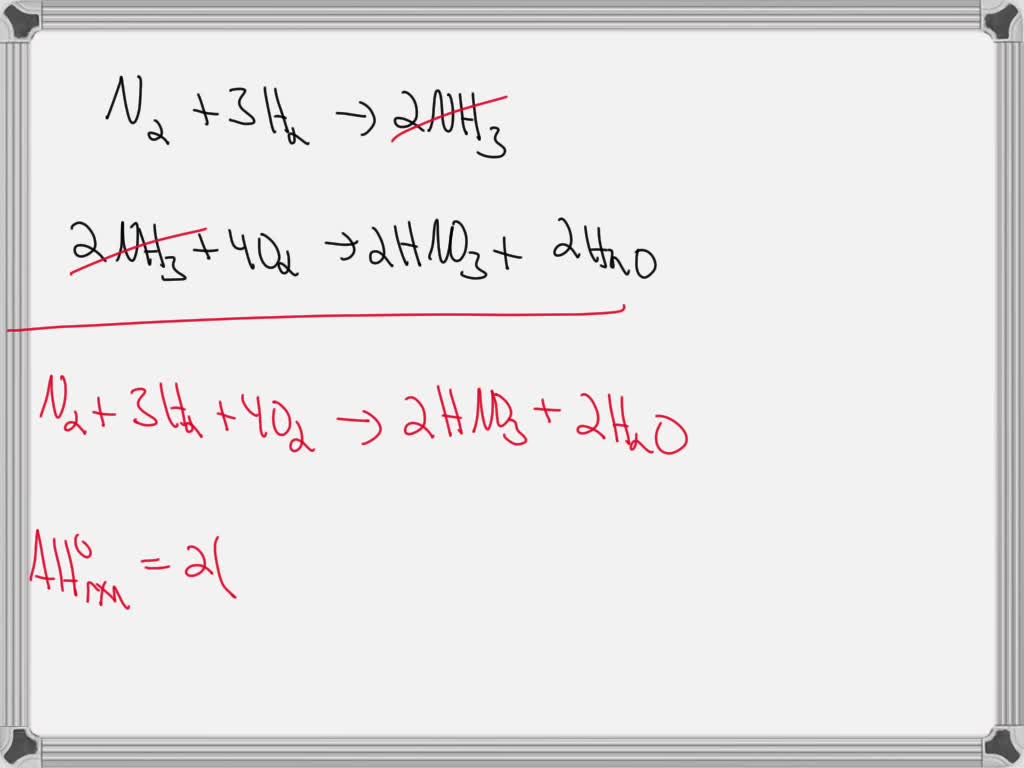 N₂ + 3H₂ → 2NH₃
2NH₃ + 4O₂ → 2HNO₃ + 2H₂O
N₂ + 3H₂ + 4O₂ → 2HNO₃ + 2H₂O
ΔH°rxn = 2(